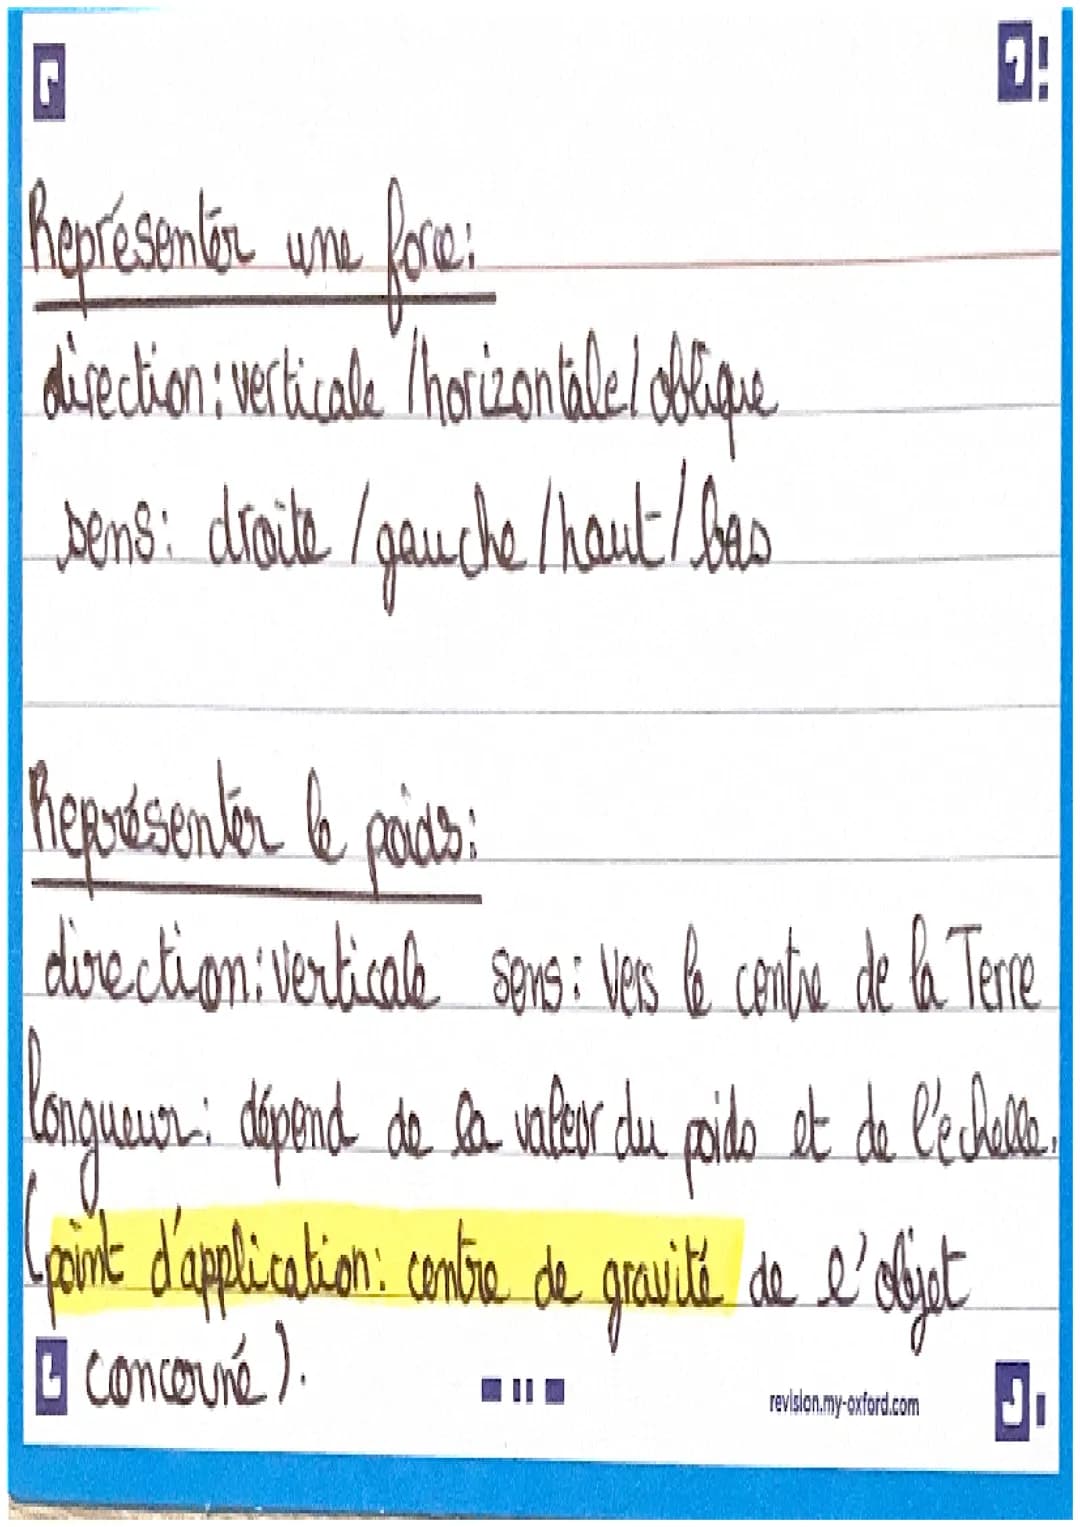 Représenter une force:
direction: verticale /horizontale/ oblique
sens: droite /gauche /haut/ bas
Représenter le poids:
direction: verticale sens: vers le centre de la Terre
longueur: dépend de la valeur du poids et de l'échelle.
(point d'application: centre de gravité de l'objet
concerné).
revision.my-oxford.com